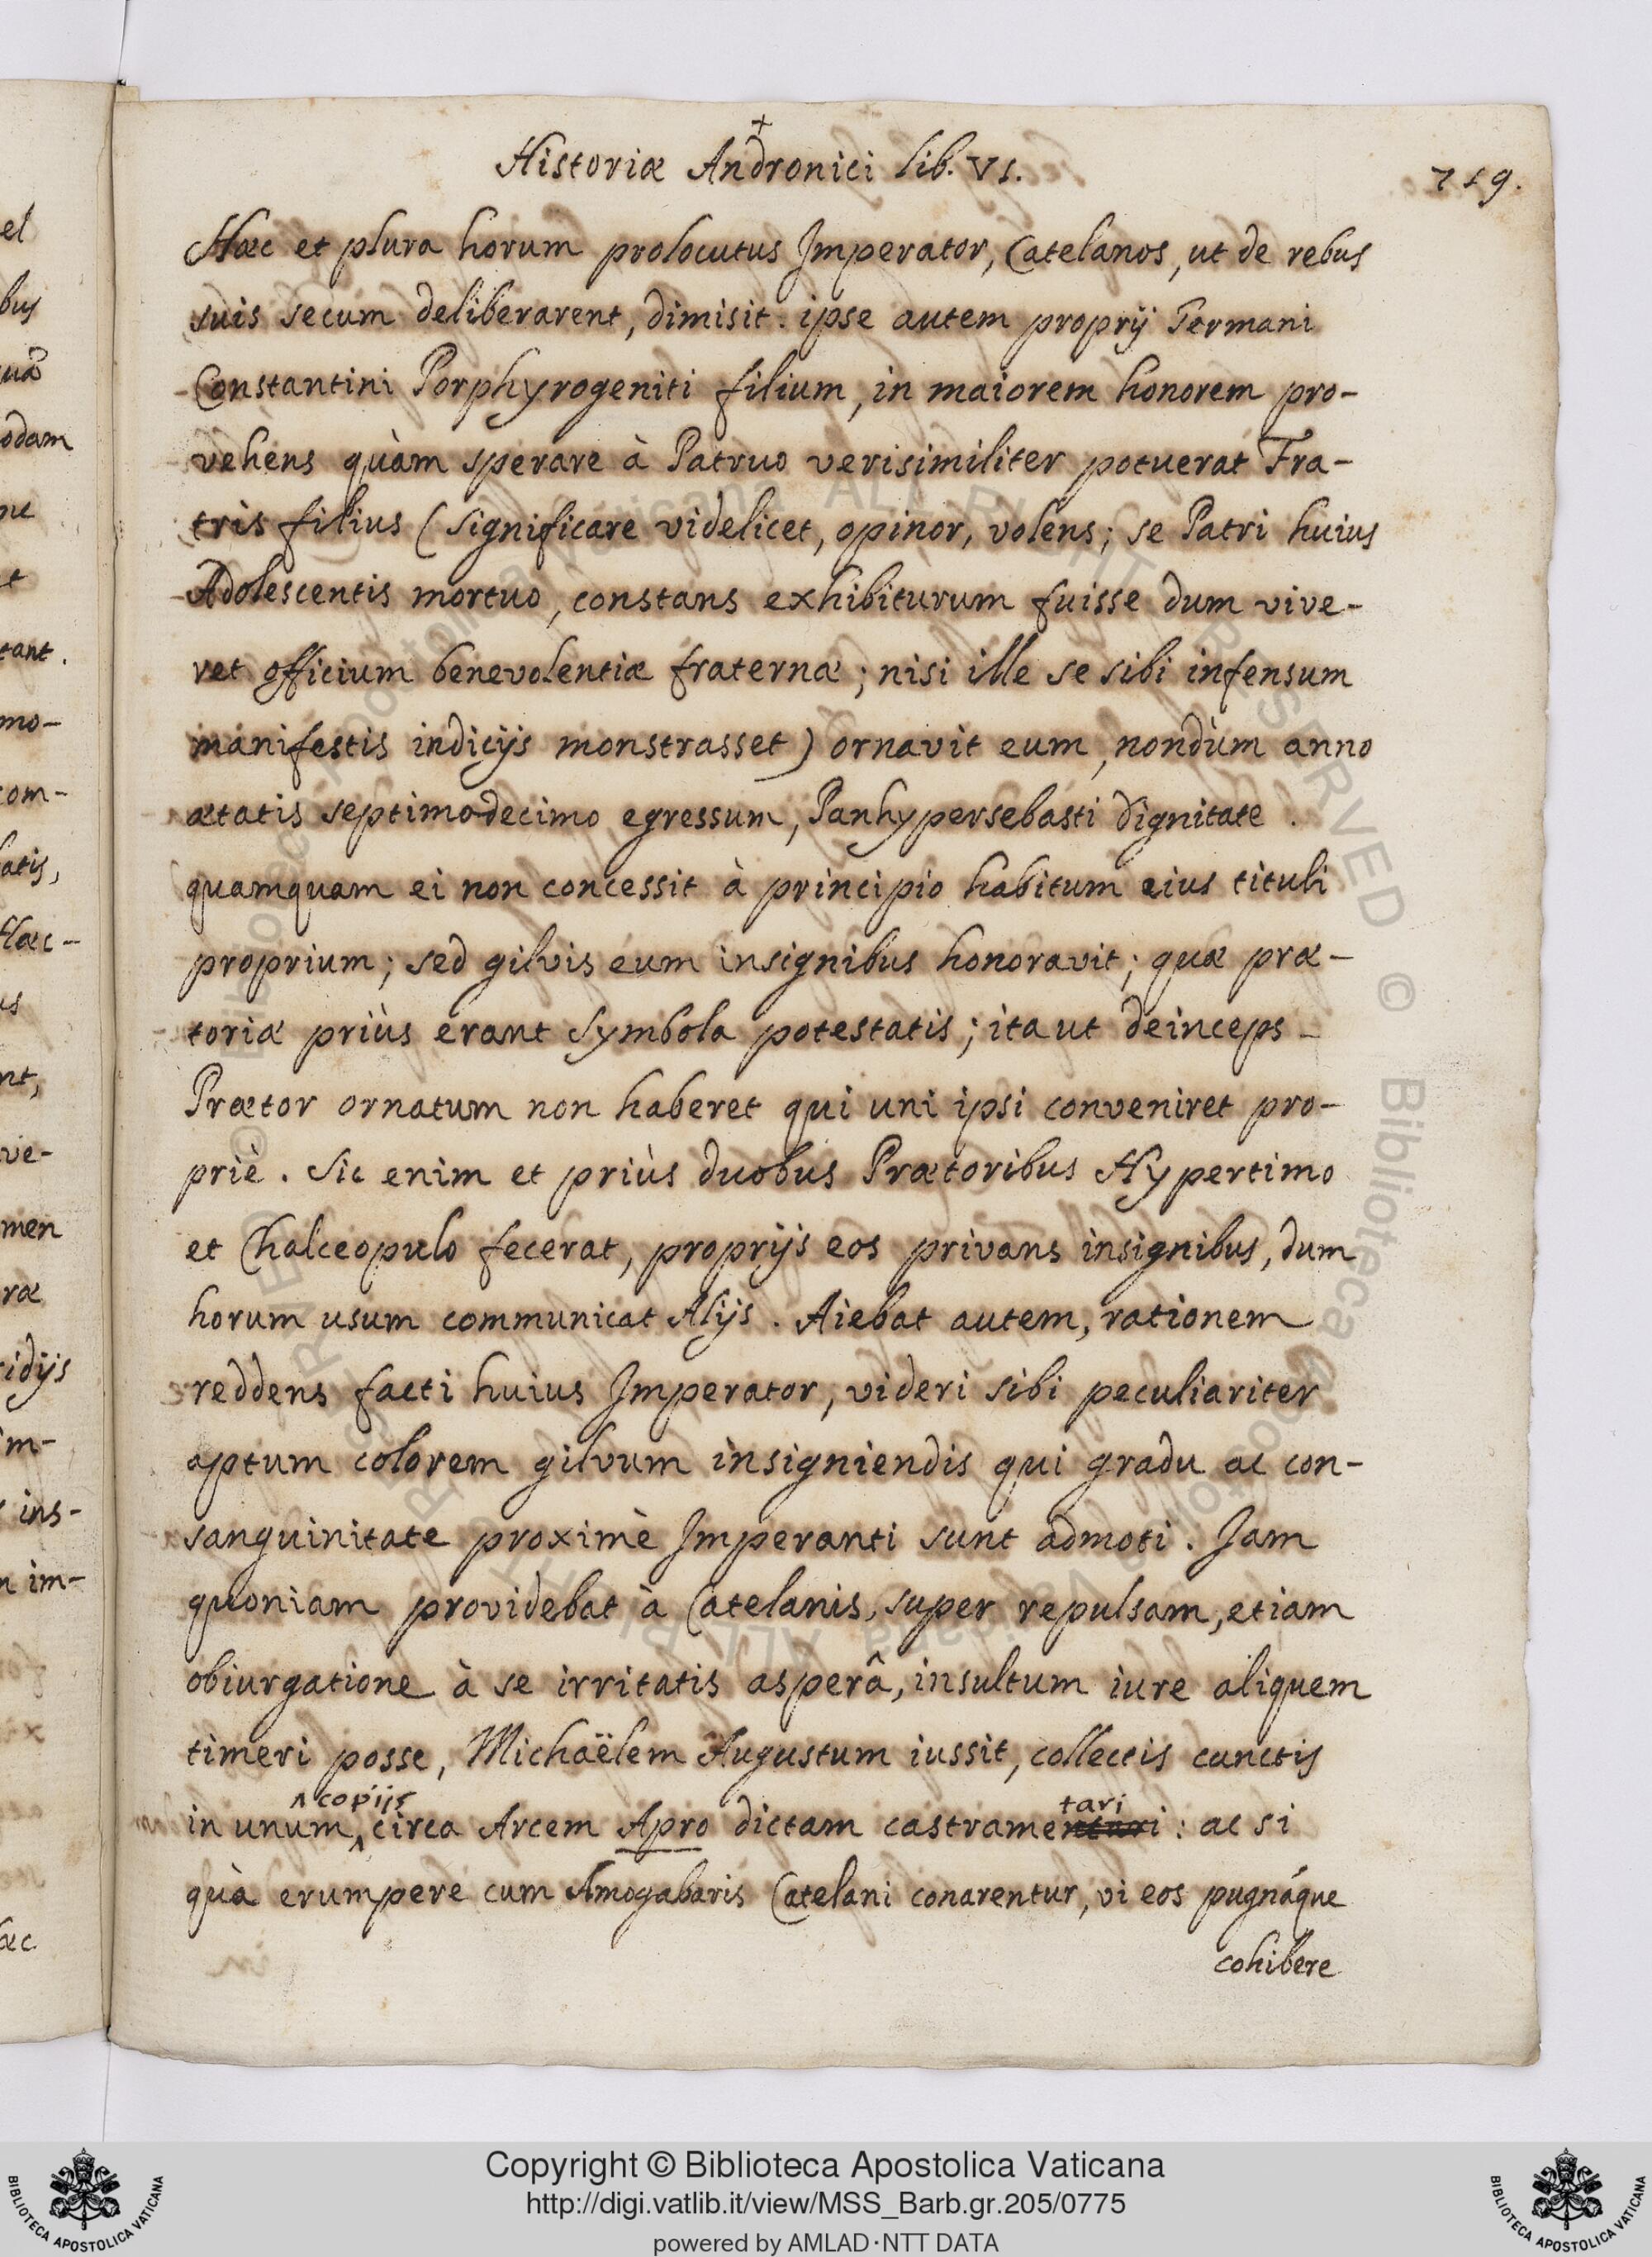 +
Historiæ Andronici lib. VI.
719.
Hæc et plura horum prolocutus Imperator, Catelanos, ut de rebus
suis secum deliberarent, dimisit. ipse autem proprij Germani
Constantini Porphyrogeniti filium, in maiorem honorem pro-
vehens quàm sperare à Patruo verisimiliter potuerat Fra-
tris filius (significare videlicet, opinor, volens; se Patri huius
Adolescentis mortuo, constans exhibiturum fuisse dum vive-
ret officium benevolentiæ fraternæ; nisi ille se sibi infensum
manifestis indicijs monstrasset) ornavit eum, nondùm anno
ætatis septimodecimo egressum, Panhypersebasti dignitate.
quamquam ei non concessit à principio habitum eius tituli
proprium; sed gilvis eum insignibus honoravit; quæ præ-
toriæ priùs erant symbola potestatis; ita ut deinceps
Prætor ornatum non haberet qui uni ipsi conveniret pro-
priè. Sic enim et priùs duobus Prætoribus Hypertimo
et Chalceopulo fecerat, proprijs eos privans insignibus, dum
horum usum communicat Alijs. Aiebat autem, rationem
reddens facti huius Imperator, videri sibi peculiariter
aptum colorem gilvum insigniendis qui gradu ac con-
sanguinitate proximè Imperanti sunt admoti. Jam
quoniam providebat à Catelanis, super repulsam, etiam
obiurgatione à se irritatis asperâ, insultum iure aliquem
timeri posse, Michaëlem Augustum iussit, collectis cunctis
in unum copijs circa Arcem Apro dictam castrametari: ac si
quà erumpere cum Amogabaris Catelani conarentur, vi eos pugnáque
cohibere
el
bus
uã
odam
ne
et
tant.
mo-
com-
hatis,
Hæc-
us
nt,
ve-
men
ræ
ridijs
im-
ins-
n im-
æc
Copyright © Biblioteca Apostolica Vaticana
http://digi.vatlib.it/view/MSS_Barb.gr.205/0775
powered by AMLAD·NTT DATA
BIBLIOTECA APOSTOLICA VATICANA
BIBLIOTECA APOSTOLICA VATICANA